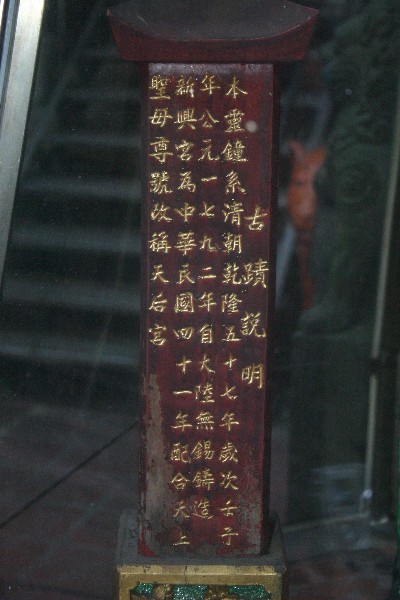 古蹟説明
本靈鐘系清朝乾隆五十七年歲次壬子
年公元一七九二年自大陸無錫鑄造
新興宮為中華民國四十一年配合天上
聖母尊號改稱天后宮